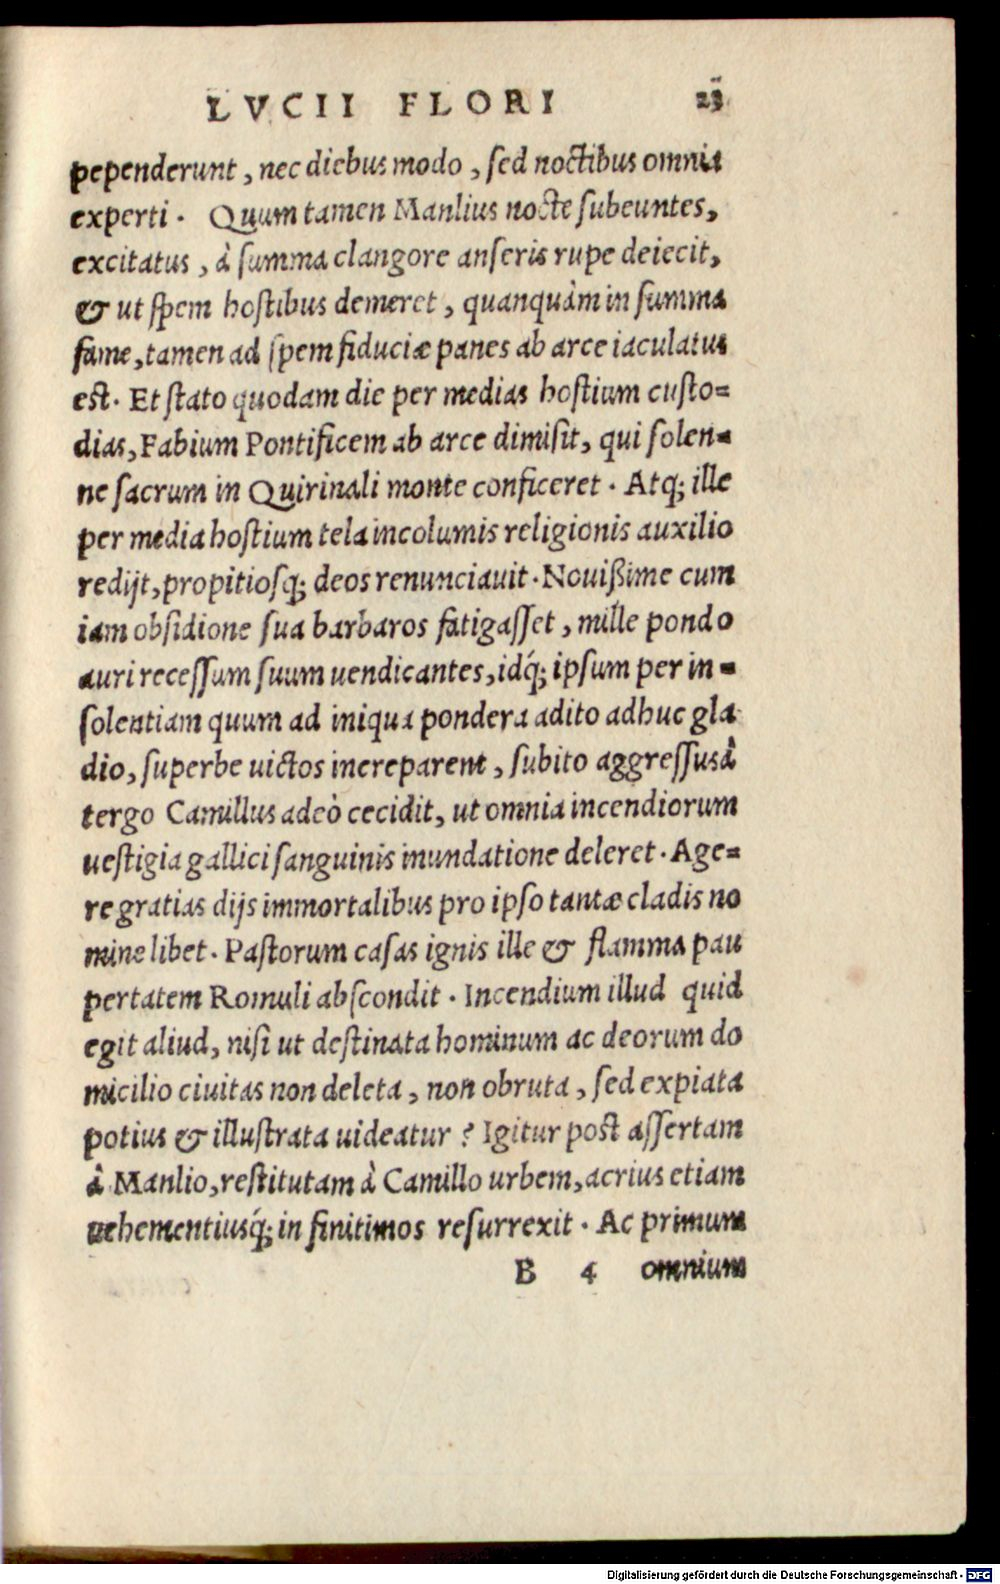 LVCII FLORI 23
pependerunt, nec diebus modo, sed noctibus omnia
experti. Quum tamen Manlius nocte subeuntes,
excitatus, à summa clangore anseris rupe deiecit,
& ut spem hostibus demeret, quanquàm in summa
fame, tamen ad spem fiduciæ panes ab arce iaculatus
est. Et stato quodam die per medias hostium custo=
dias, Fabium Pontificem ab arce dimisit, qui solen=
ne sacrum in Quirinali monte conficeret. Atq; ille
per media hostium tela incolumis religionis auxilio
redijt, propitiosq; deos renunciauit. Nouißime cum
iam obsidione sua barbaros fatigasset, mille pondo
auri recessum suum uendicantes, idq́; ipsum per in=
solentiam quum ad iniqua pondera adito adhuc gla
dio, superbe uictos increparent, subito aggressus à
tergo Camillus adeò cecidit, ut omnia incendiorum
uestigia gallici sanguinis inundatione deleret. Age=
re gratias dijs immortalibus pro ipso tantæ cladis no
mine libet. Pastorum casas ignis ille & flamma pau
pertatem Romuli abscondit. Incendium illud quid
egit aliud, nisi ut destinata hominum ac deorum do
micilio ciuitas non deleta, non obruta, sed expiata
potius & illustrata uideatur? Igitur post assertam
à Manlio, restitutam à Camillo urbem, acrius etiam
uehementiusq́; in finitimos resurrexit. Ac primum
B 4 omnium
Digitalisierung gefördert durch die Deutsche Forschungsgemeinschaft - DFG